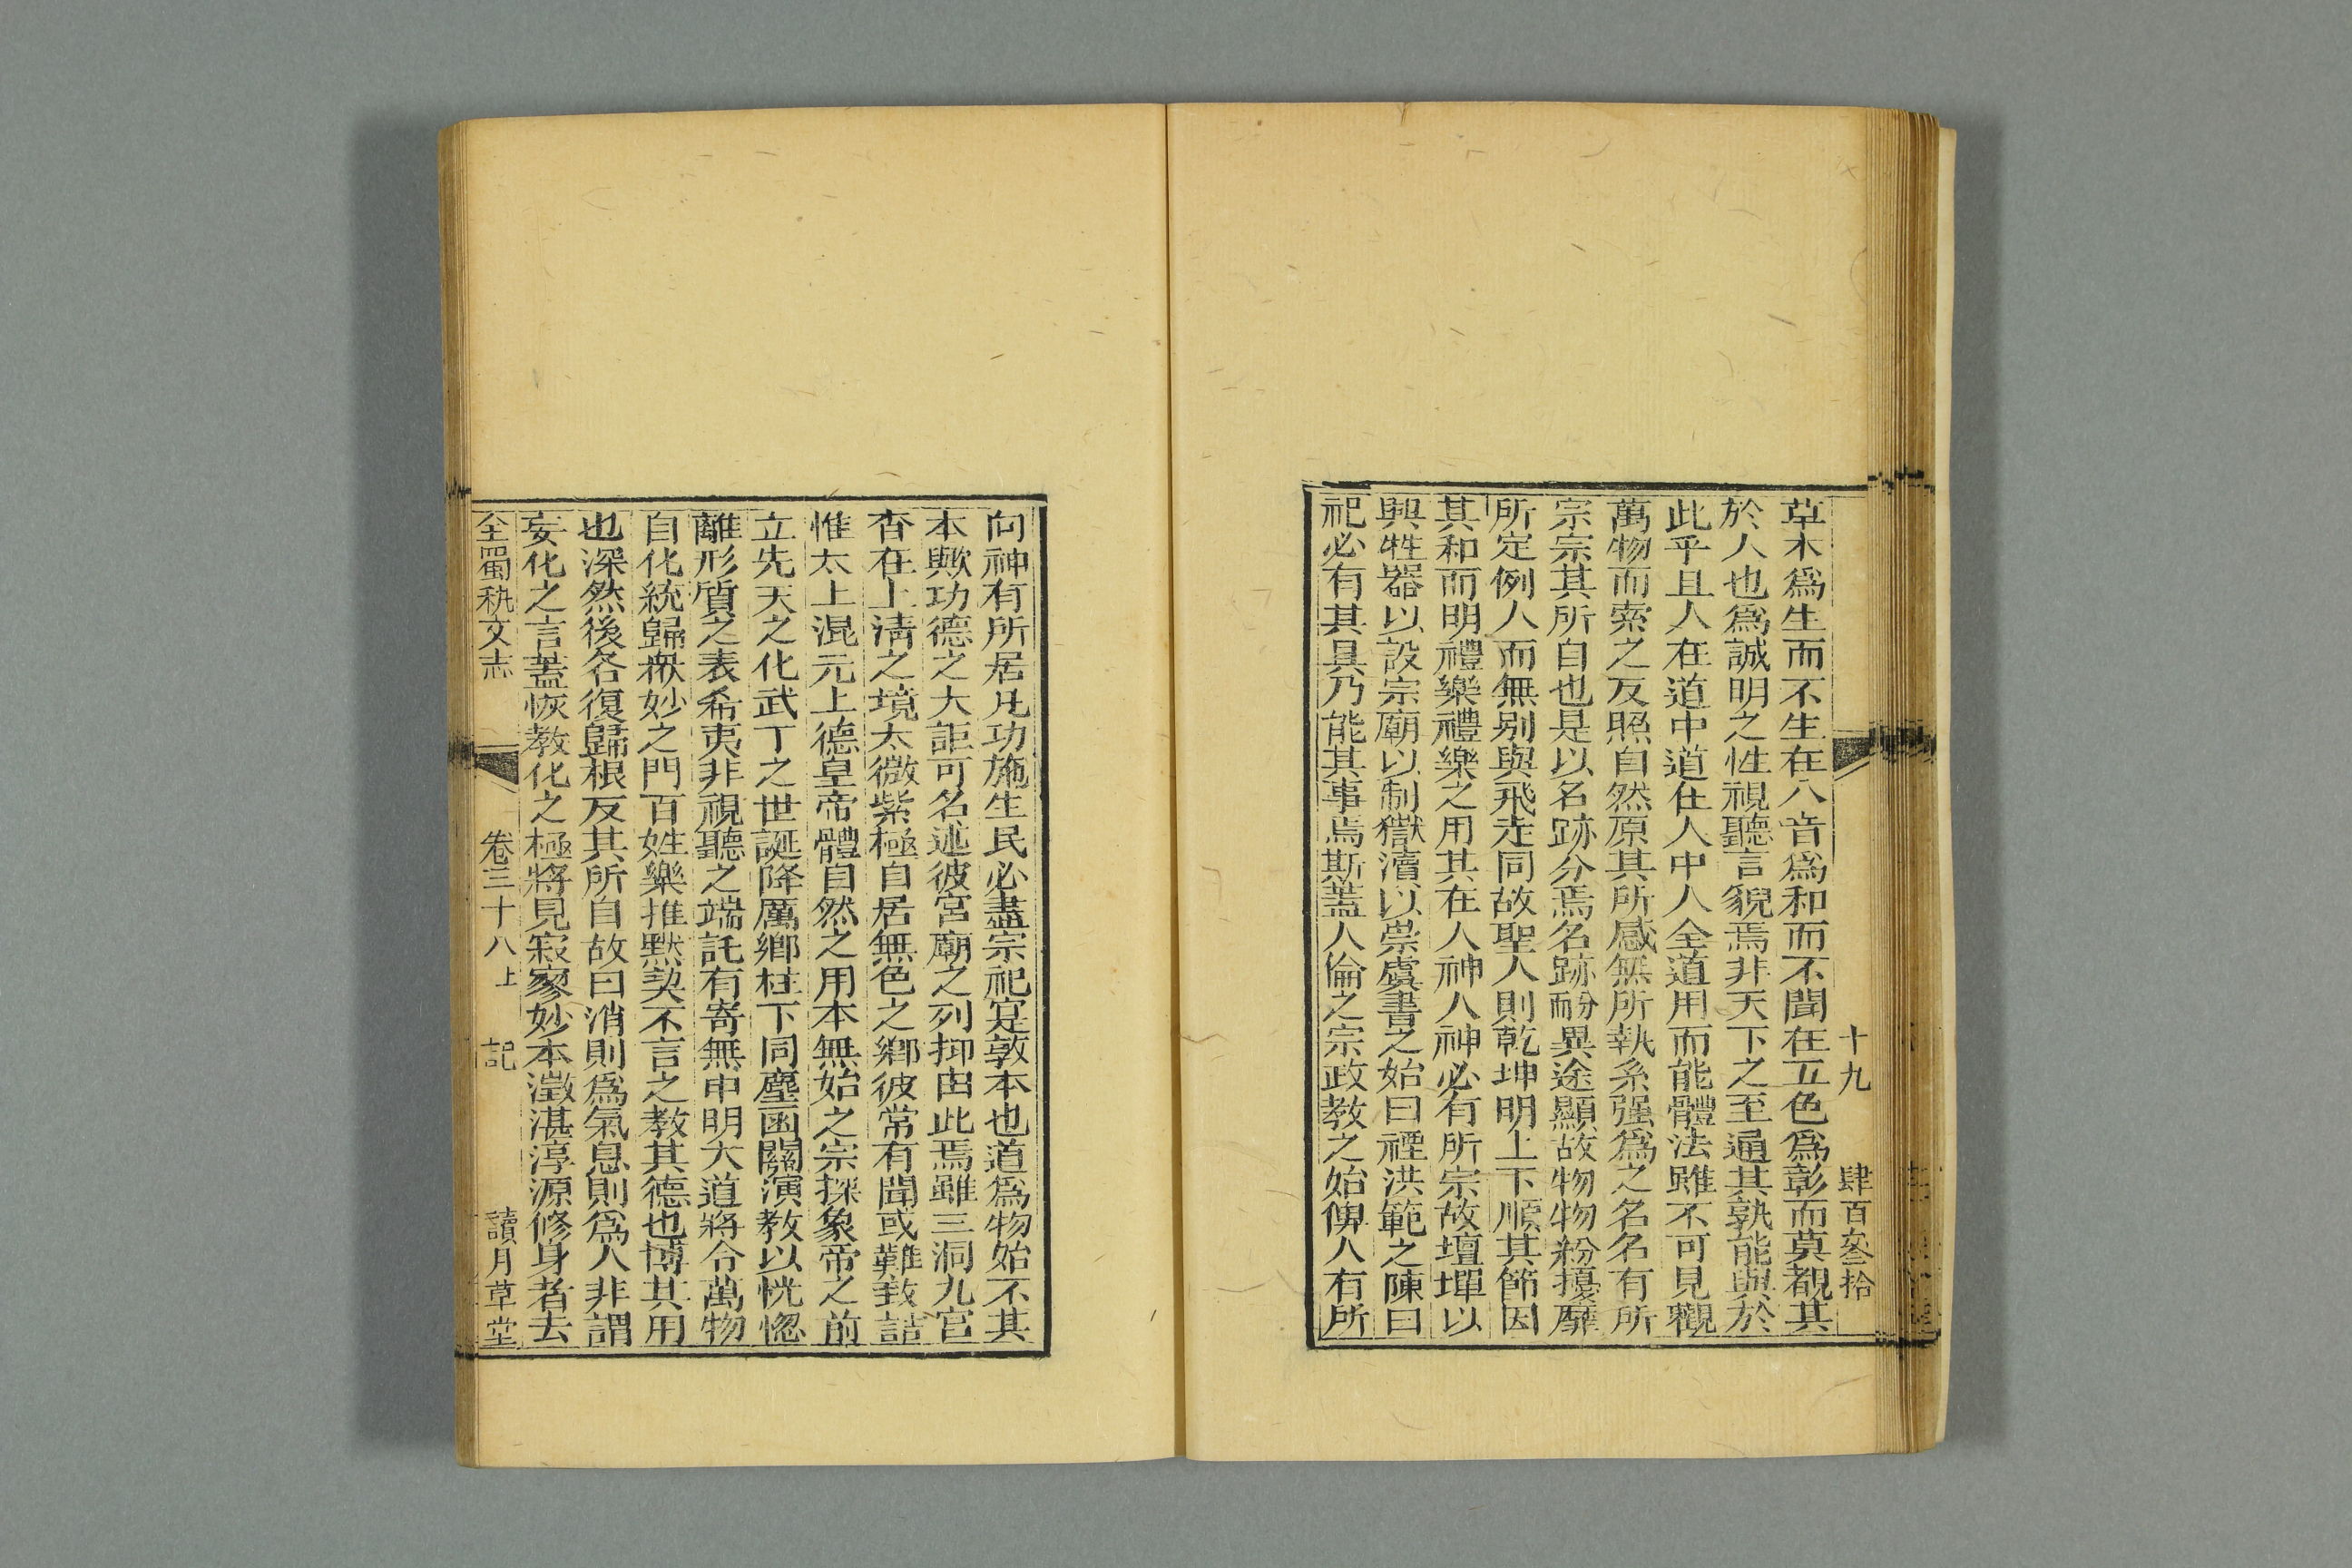 十九 肆百叄拾
草木爲生而不生在八音爲和而不聞在五色爲彰而莫覩其
於人也爲誠明之性視聽言貌焉非天下之至通其孰能與於
此乎且人在道中道在人中人全道用而能體法雖不可見觀
萬物而索之反照自然原其所感無所執系强爲之名名有所
宗宗其所自也是以名跡分焉名跡酚異途顯故物物粉擾靡
所定例人而無别與飛走同故聖人則乾坤明上下順其節因
其和而明禮樂禮樂之用其在人神人神必有所宗故壇墠以
興牲器以設宗廟以制嶽瀆以崇虞書之始曰禋洪範之陳曰
祀必有其具乃能其事焉斯蓋人倫之宗政教之始俾人有所
向神有所居凡功施生民必盡宗祀寔敦本也道爲物始不其
本歟功德之大詎可名述彼宮廟之列抑由此焉雖三洞九宫
杳在上淸之境太微紫極自居無色之鄉彼常有聞或難致詰
惟太上混元上德皇帝體自然之用本無始之宗探象帝之前
立先天之化武丁之世誕降厲鄉柱下同塵函關演教以恍惚
離形質之表希夷非視聽之端託有寄無申明大道將令萬物
自化統歸衆妙之門百姓樂推默契不言之教其德也博其用
也深然後各復歸根反其所自故曰消則爲氣息則爲人非謂
妄化之言蓋恢教化之極將見寂寥妙本澂湛淳源修身者去
全蜀秇文志 卷三十八上 記 讀月草堂